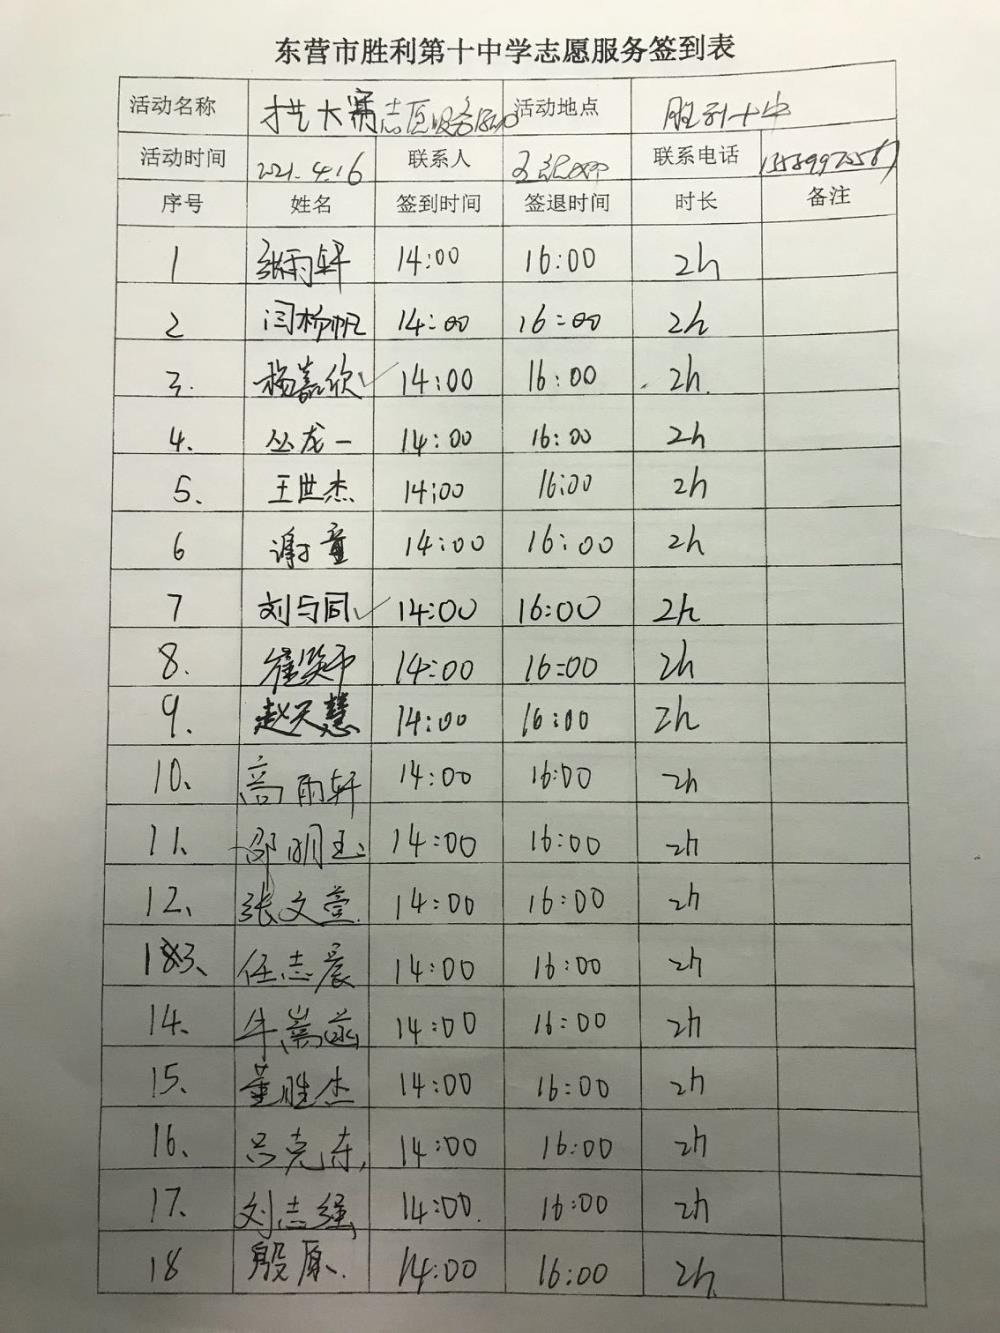 东营市胜利第十中学志愿服务签到表
活动名称 才艺大赛志愿服务活动 活动地点 胜利十中
活动时间 2021.4.16 联系人 联系电话
序号 姓名 签到时间 签退时间 时长 备注
1 张雨轩 14:00 16:00 2h
2 闫杨帆 14:00 16:00 2h
3. 杨嘉欣✓ 14:00 16:00 2h.
4. 丛龙一 14:00 16:00 2h
5、 王世杰 14:00 16:00 2h
6 谢童 14:00 16:00 2h
7 刘与同✓ 14:00 16:00 2h
8. 14:00 16:00 2h
9. 赵天慧 14:00 16:00 2h
10. 高雨轩 14:00 16:00 2h
11、 邵明玉 14:00 16:00 2h
12、 张文萱. 14:00 16:00 2h
13、 任志晨 14:00 16:00 2h
14、 牛嵩菡 14:00 16:00 2h
15、 董胜杰 14:00 16:00 2h
16、 吕克东, 14:00 16:00 2h
17、 刘志强 14:00. 16:00 2h
18 殷原. 14:00 16:00 2h.